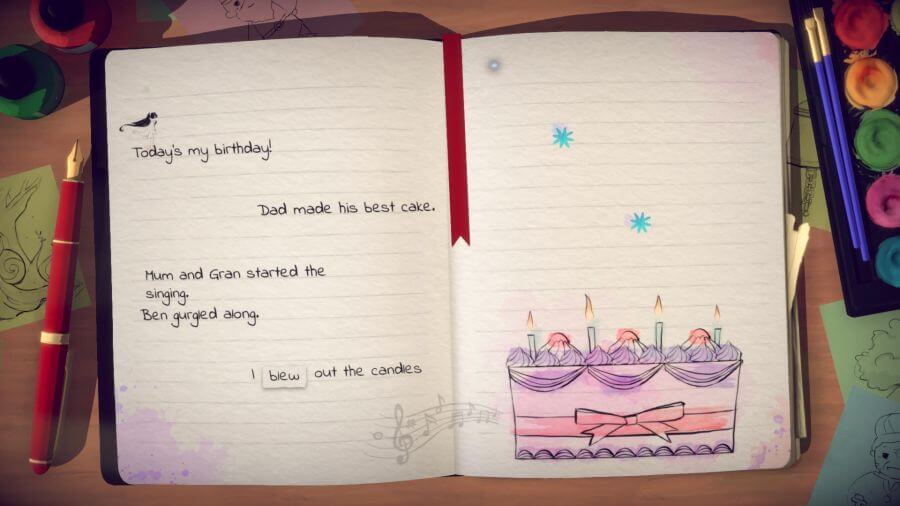 Today's my birthday!
Dad made his best cake.
Mum and Gran started the
singing.
Ben gurgled along.
I blew out the candles